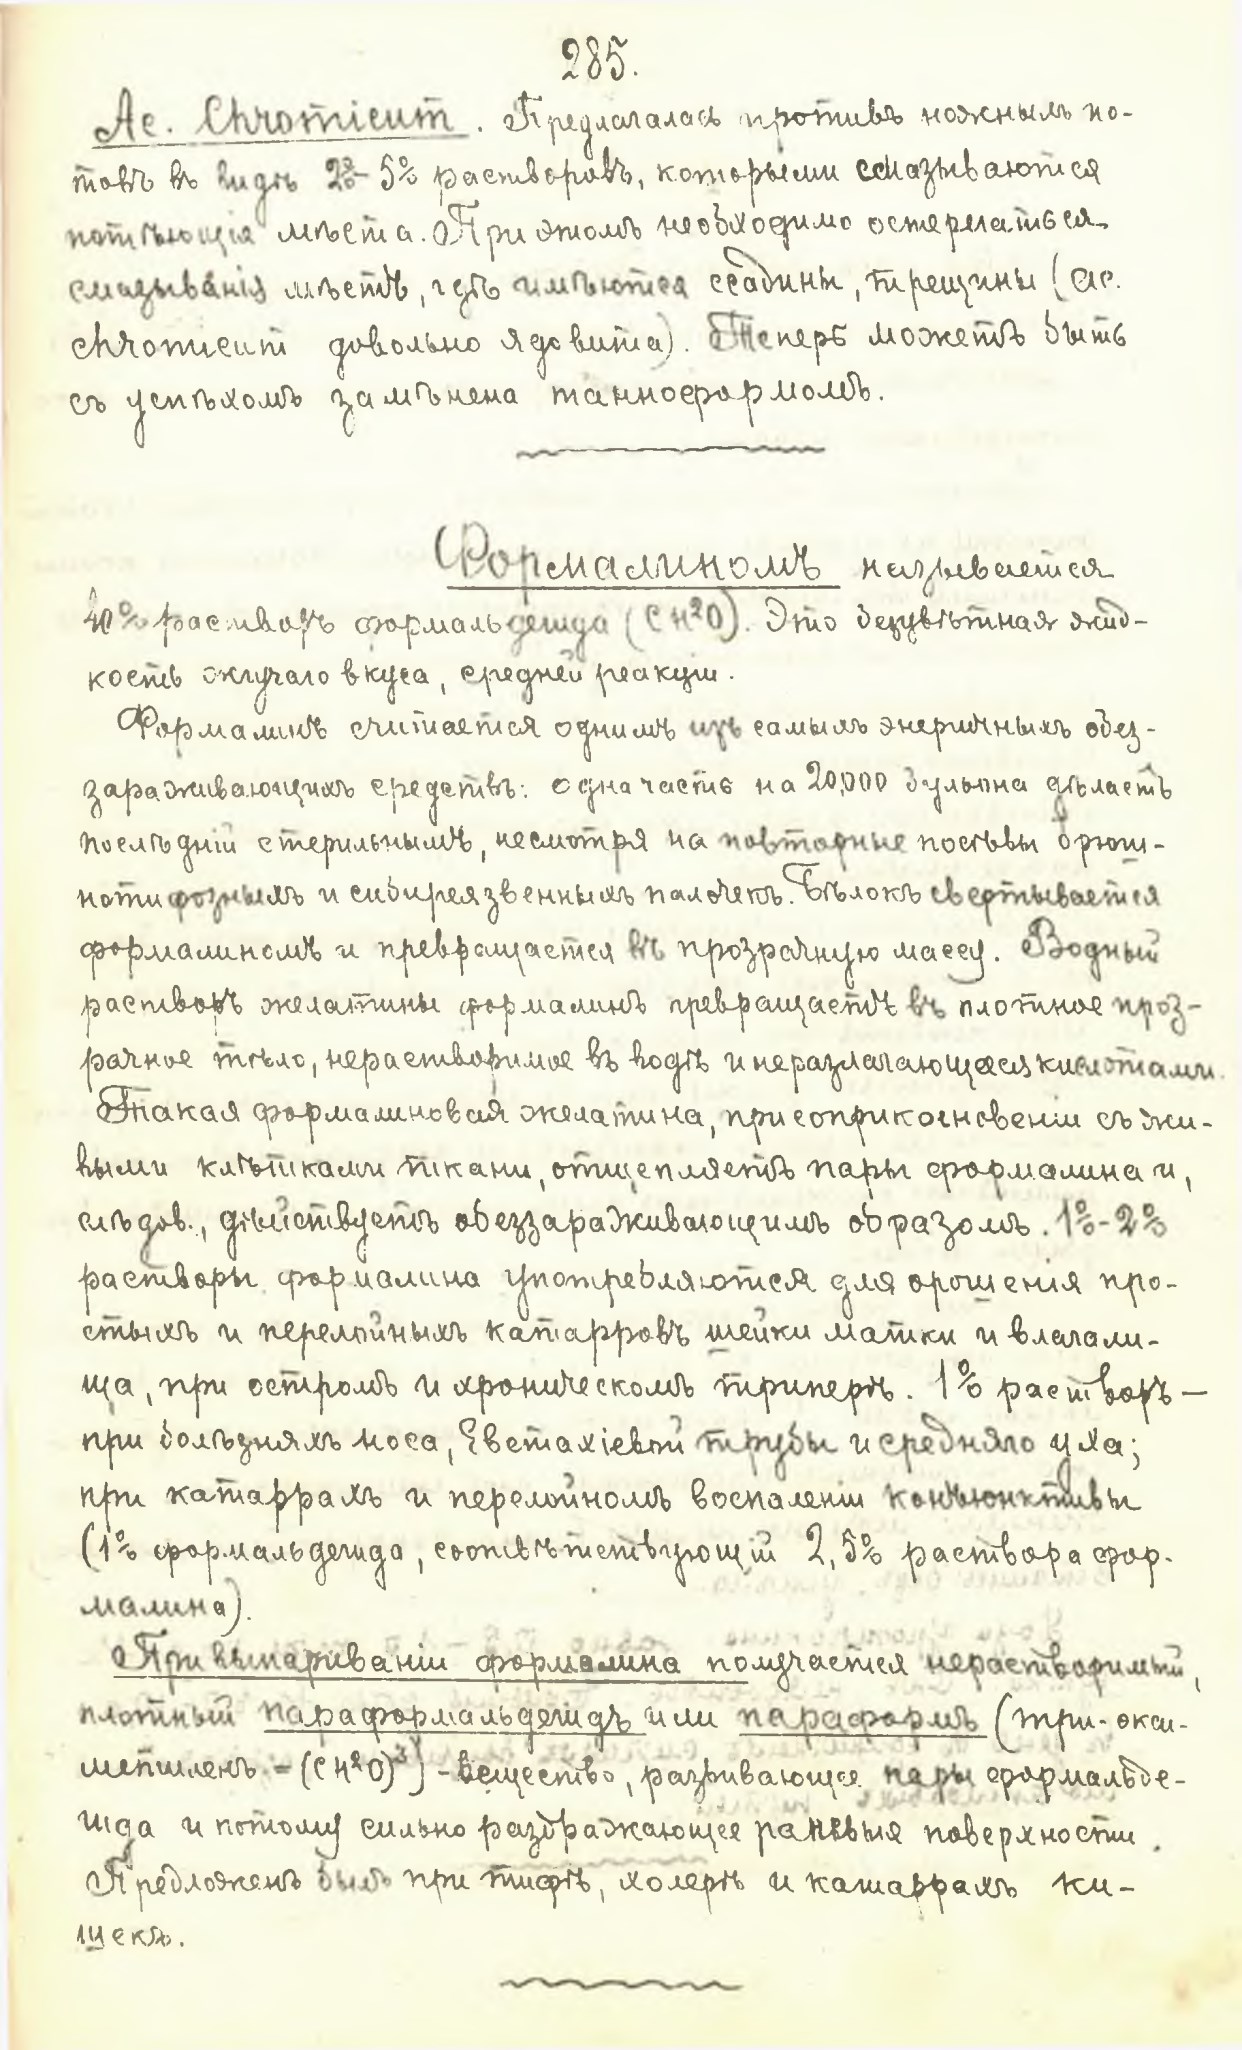 285.
Ac. Chromicum. Предлагалась противъ ножныхъ по-
товъ въ видѣ 2%-5% растворовъ, которыми смазываются
потѣющія мѣста. При этомъ необходимо остерегаться
смазыванія мѣстъ, гдѣ имѣются ссадины, трещины (ac.
chromicum довольно ядовита). Теперь можетъ быть
съ успѣхомъ замѣнена танноформомъ.
Формалиномъ называется
40% растворъ формальдегида (CH²O). Это безцвѣтная жид-
кость жгучаго вкуса, средней реакціи.
Формалинъ считается однимъ изъ самыхъ энергичныхъ обез-
зараживающихъ средствъ: одна часть на 20,000 бульона дѣлаетъ
послѣдній стерильнымъ, несмотря на повторные посѣвы брюш-
нотифозныхъ и сибиреязвенныхъ палочекъ. Бѣлокъ свертывается
формалиномъ и превращается въ прозрачную массу. Водный
растворъ желатины формалинъ превращаетъ въ плотное проз-
рачное тѣло, нерастворимое въ водѣ и неразлагающееся кислотами.
Такая формалиновая желатина, при соприкосновеніи съ жи-
выми клѣтками ткани, отщепляетъ пары формалина и,
слѣдов., дѣйствуетъ обеззараживающимъ образомъ. 1%-2%
растворы формалина употребляются для орошенія про-
стыхъ и перелойныхъ катарровъ шейки матки и влагали-
ща, при остромъ и хроническомъ триперѣ. 1% растворъ —
при болѣзняхъ носа, Евстахіевой трубы и средняго уха;
при катаррахъ и перелойномъ воспаленіи конъюнктивы
(1% формальдегида, соотвѣтствующій 2,5% раствора фор-
малина).
При выпариваніи формалина получается нерастворимый,
плотный параформальдегидъ или параформъ (три-окси-
метиленъ = (CH²O)³) - вещество, развивающее пары формальде-
гида и потому сильно раздражающее раневыя поверхности.
Предложенъ былъ при тифѣ, холерѣ и катаррахъ ки-
шекъ.